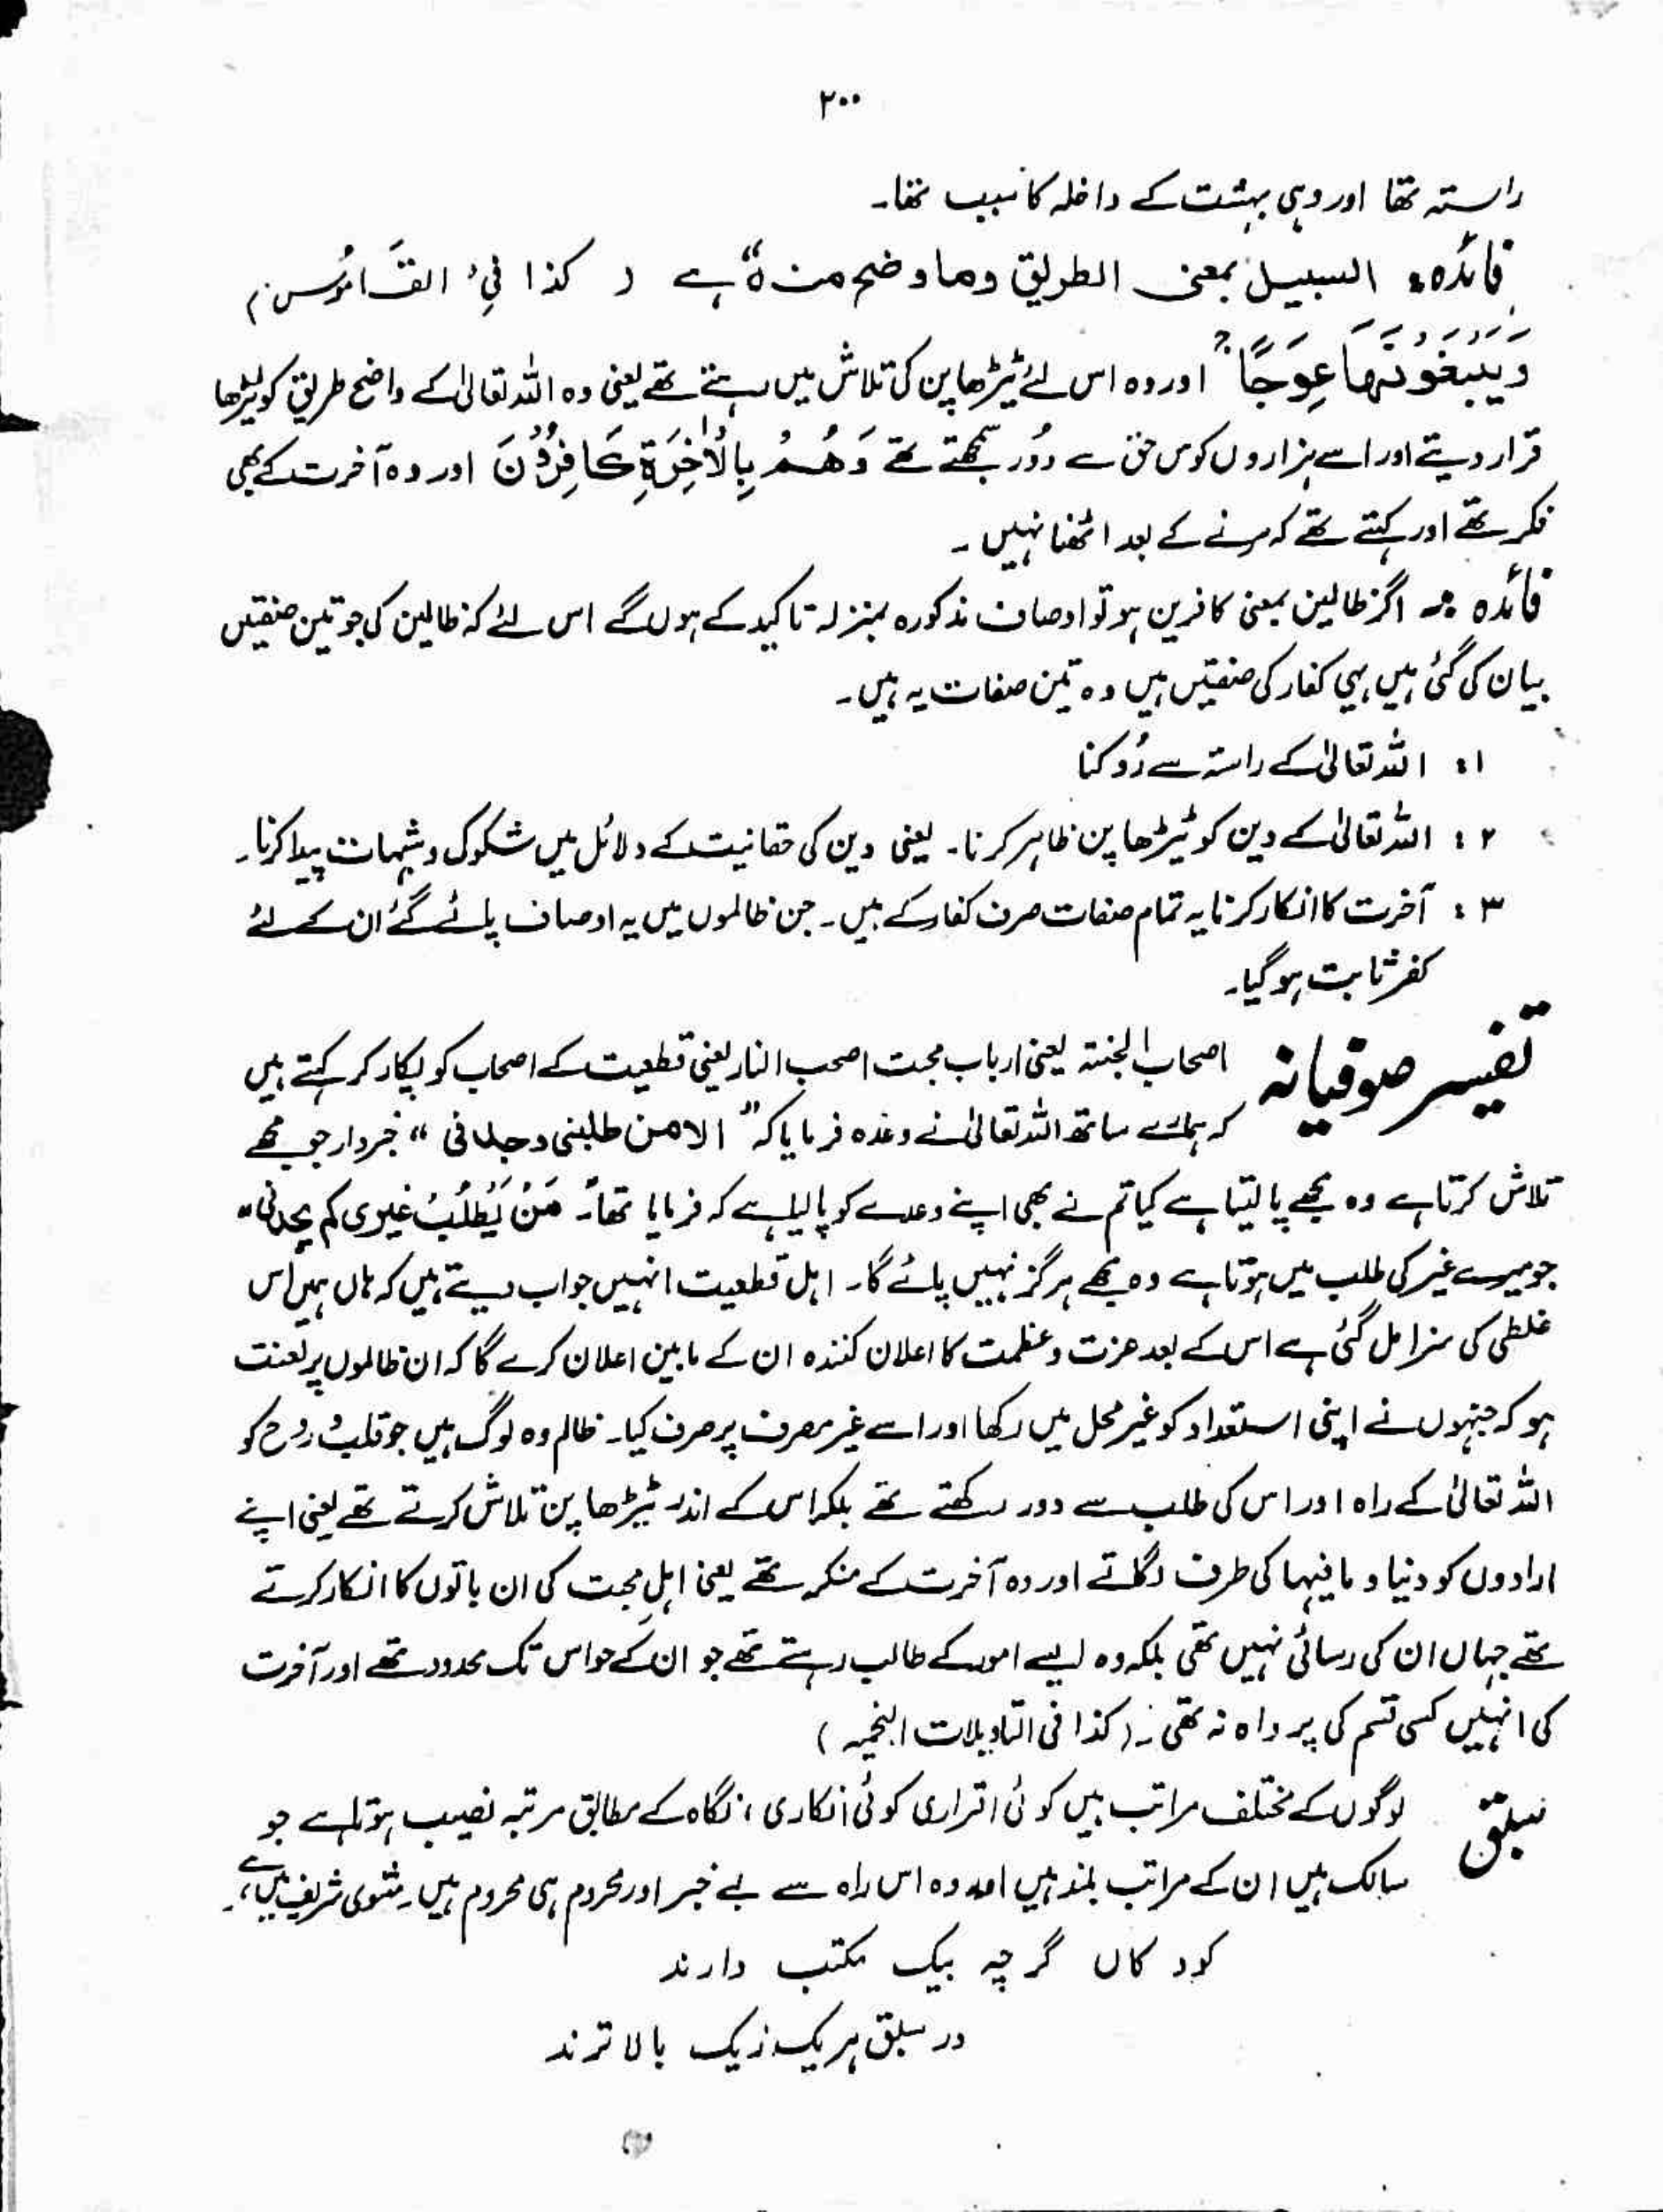 ۲۰۰
راستہ تھا اور وہی بہشت کے داخلہ کا سبب تھا۔
فائدہ: السبیل بمعنی الطریق وما وضح منہ ہے ( کذا فی القاموس )
وَیَبْغُوْنَہَا عِوَجًا" اور وہ اس لئے ٹیڑھا پن کی تلاش میں رہتے تھے یعنی وہ اللہ تعالیٰ کے واضح طریق کو ٹیڑھا
قرار دیتے اور اسے ہزاروں کوس حق سے دُور سمجھتے تھے وَھُمْ بِالْاٰخِرَۃِ کَافِرُوْنَ اور وہ آخرت کے بھی
منکر تھے اور کہتے تھے کہ مرنے کے بعد اٹھنا نہیں ۔
فائدہ : اگر ظالین بمعنی کافرین ہو تو اوصاف مذکورہ بمنزلہ تاکید کے ہوں گے اس لئے کہ ظالمین کی جو تین صفتیں
بیان کی گئی ہیں یہی کفار کی صفتیں ہیں وہ تین صفات یہ ہیں۔
۱: اللہ تعالیٰ کے راستہ سے رُوکنا
۲ : اللہ تعالیٰ کے دین کو ٹیڑھا پن ظاہر کرنا۔ یعنی دین کی حقانیت کے دلائل میں شکوک و شبہات پیدا کرنا۔
۳ : آخرت کا انکار کرنا یہ تمام صفات صرف کفار کے ہیں۔ جن ظالموں میں یہ اوصاف پائے گئے ان کے لئے
کفر ثابت ہو گیا۔
تفسیر صوفیانہ اصحاب الجنتہ یعنی ارباب محبت اصحب النار یعنی قطعیت کے اصحاب کو پکار کر کہتے ہیں
کہ ہمارے ساتھ اللہ تعالیٰ نے وعدہ فرمایا کہ" الا من طلبنی وجدنی " خبردار جو مجھے
تلاش کرتا ہے وہ مجھے پا لیتا ہے کیا تم نے بھی اپنے وعدے کو پالیا ہے کہ فرمایا تھا۔ مَنْ یَطْلُبُ غیری لم یجدنی"
جو میرے غیر کی طلب میں ہوتا ہے وہ مجھے ہرگز نہیں پائے گا۔ اہل قطعیت انہیں جواب دیتے ہیں کہ ہاں ہمیں اس
غلطی کی سزا مل گئی ہے اس کے بعد عزت و عظمت کا اعلان کنندہ ان کے مابین اعلان کرے گا کہ ان ظالموں پر لعنت
ہو کہ جنہوں نے اپنی استعداد کو غیر محل میں رکھا اور اسے غیر مصرف پر صرف کیا۔ ظالم وہ لوگ ہیں جو قلب و روح کو
اللہ تعالیٰ کے راہ اور اس کی طلب سے دور رکھتے تھے بلکہ اس کے اندر ٹیڑھا پن تلاش کرتے تھے یعنی اپنے
ارادوں کو دنیا و مافیہا کی طرف لگاتے اور وہ آخرت کے منکر تھے یعنی اہلِ محبت کی ان باتوں کا انکار کرتے
تھے جہاں ان کی رسائی نہیں تھی بلکہ وہ ایسے امور کے طالب رہتے تھے جو ان کے حواس تک محدود تھے اور آخرت
کی انہیں کسی قسم کی پرواہ نہ تھی ۔ (کذا فی التاویلات النجمیہ )
سبق لوگوں کے مختلف مراتب ہیں کوئی اقراری کوئی انکاری ، نگاہ کے مطابق مرتبہ نصیب ہوتا ہے جو
سالک ہیں ان کے مراتب بلند ہیں اور وہ اس راہ سے بے خبر اور محروم ہی محروم ہیں۔ مثنوی شریف میں ہے،۔
کود کاں گرچہ بیک مکتب دارند
در سبق ہر یک زیک بالا ترند